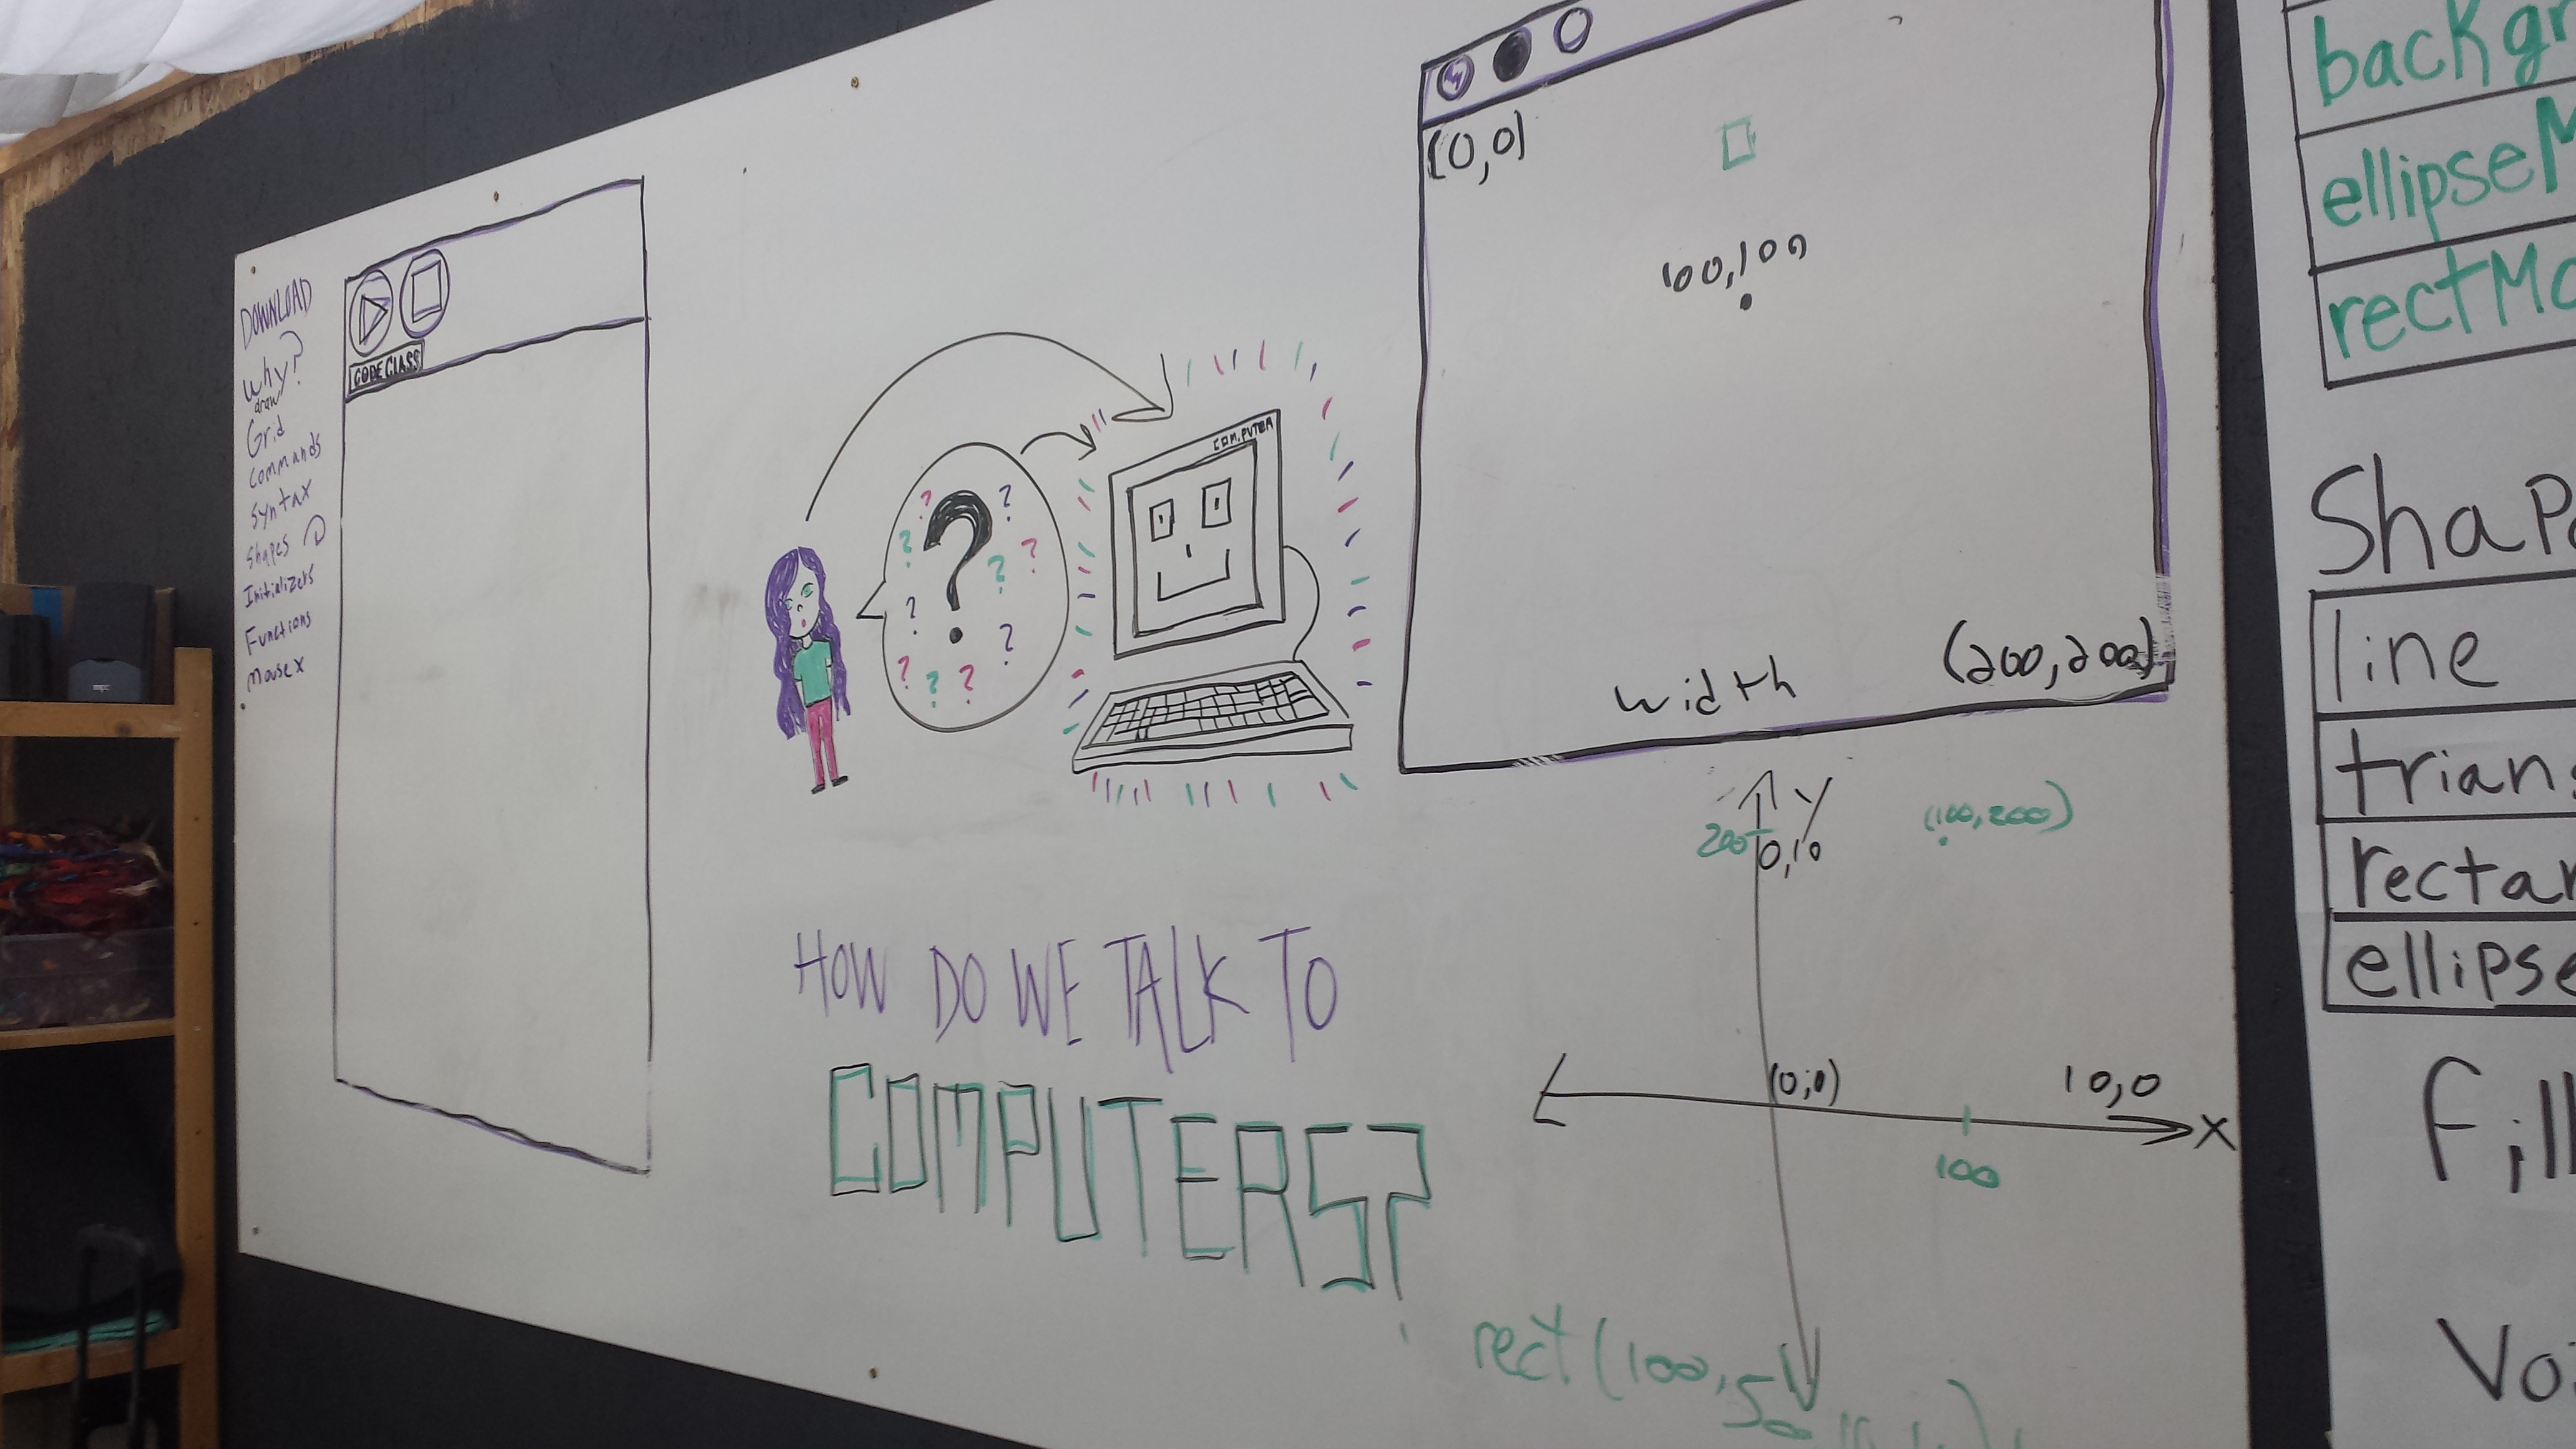 DOWNLOAD
Why?
draw
Grid
commands
syntax
shapes
Initializers
Functions
mousex
CODE CLASS
?
COMPUTER
HOW DO WE TALK TO
COMPUTERS?
(0,0)
100,100
width
(200,200)
Y
200
0,10
(100,200)
(0,0)
10,0
X
100
rect(100,50
backgr
ellipseM
rectMo
Shap
line
triang
rectan
ellipse
Fill
Voi